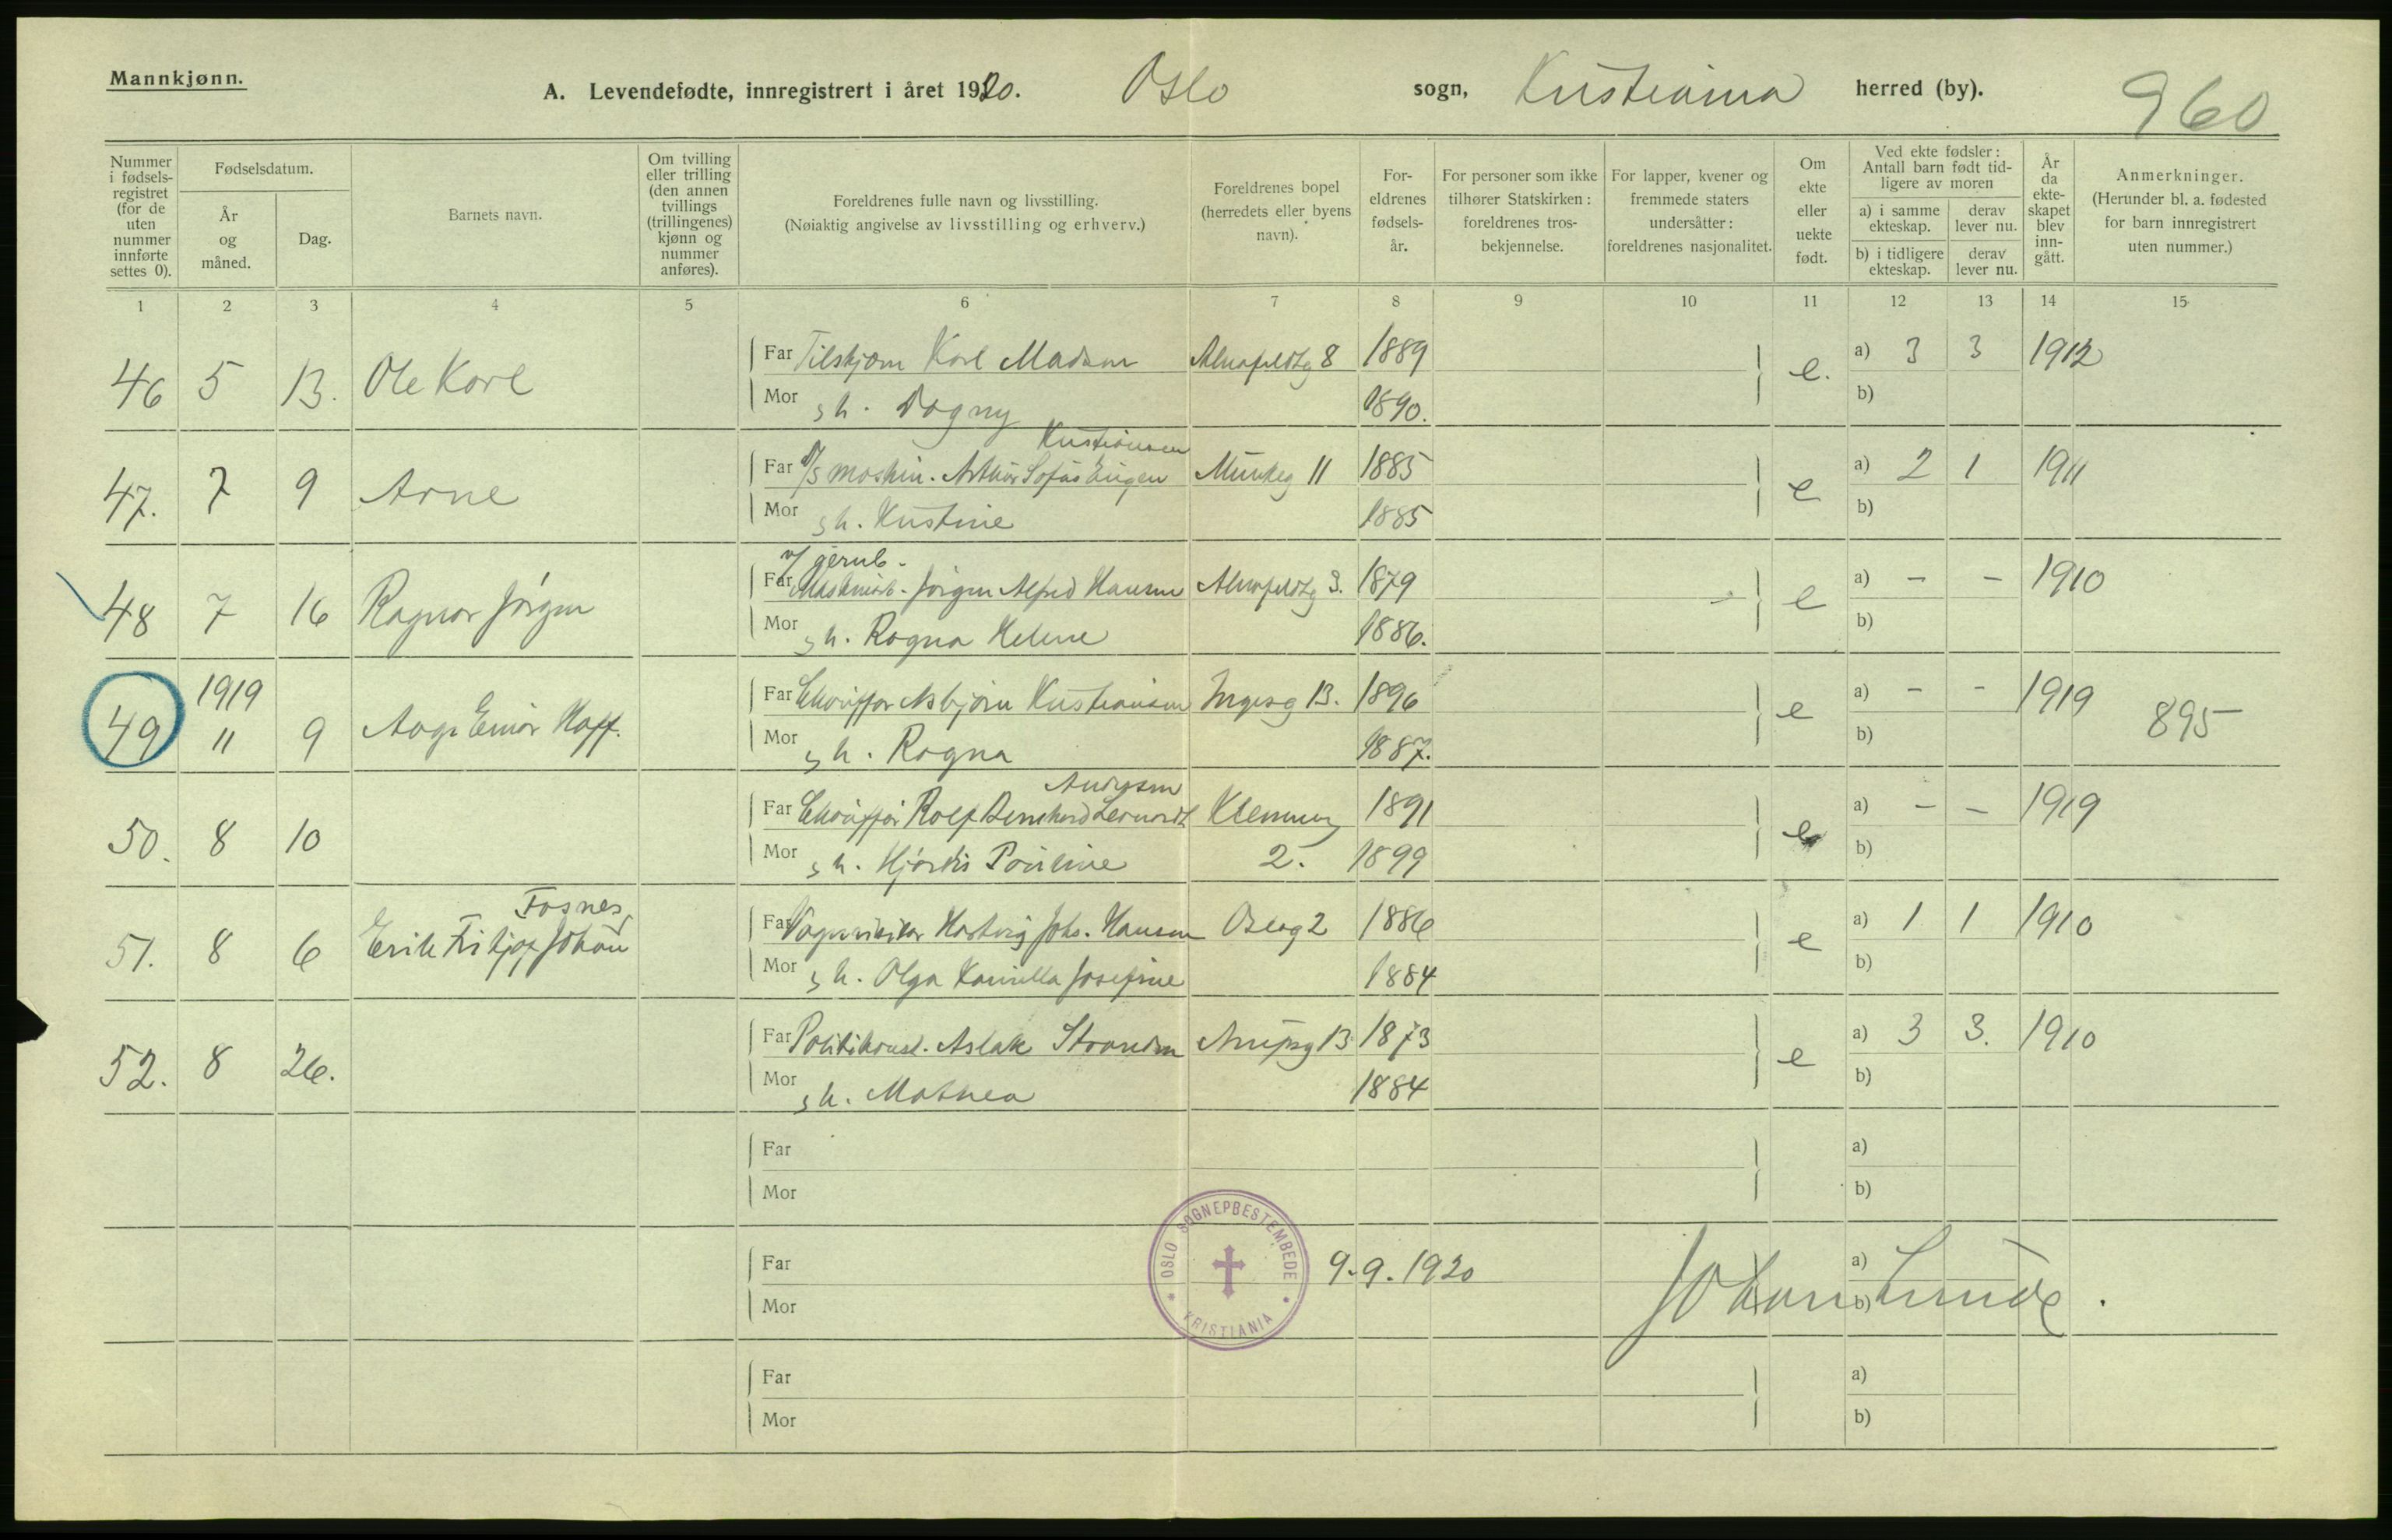 Mannkjønn.
A. Levendefødte, innregistrert i året 1920. Oslo sogn, Kristiania herred (by). 960
Nummer i fødsels-registret (for de uten nummer innførte settes 0).
Fødselsdatum.
År og måned.
Dag.
Barnets navn.
Om tvilling eller trilling (den annen tvillings (trillingenes) kjønn og nummer anføres).
Foreldrenes fulle navn og livsstilling.
(Nøiaktig angivelse av livsstilling og erhverv.)
Foreldrenes bopel (herredets eller byens navn).
For-eldrenes fødsels-år.
For personer som ikke tilhører Statskirken: foreldrenes tros-bekjennelse.
For lapper, kvener og fremmede staters undersåtter: foreldrenes nasjonalitet.
Om ekte eller uekte født.
Ved ekte fødsler: Antall barn født tid-ligere av moren
a) i samme ekteskap.
derav lever nu.
b) i tidligere ekteskap.
derav lever nu.
År da ekte-skapet blev inn-gått.
Anmerkninger.
(Herunder bl. a. fødested for barn innregistrert uten nummer.)
1 2 3 4 5 6 7 8 9 10 11 12 13 14 15
46 5 13. Ole Karl Far Karl Madsen 8 1889 e. a) 3 3 1912
Mor h. Dagny 1890. b)
Kristiansen
47. 7 9 Arne Far Arthur Sofus Eugen Munkeg 11 1885 e a) 2 1 1911
Mor h. Kristine 1885 b)
48 7 16 Ragnar Jørgen Far Jørgen Alfred Hansen 3. 1879 e a) - - 1910
Mor h. Ragna Helene 1886. b)
1919
49 11 9 Aage Einar Hoff. Far Asbjørn Kristiansen 13. 1896 e a) - - 1919 895
Mor h. Ragna 1887. b)
Andersen
50. 8 10 Far Rolf Bernhard 1891 e a) - - 1919
Mor h. Hjørdis Pauline 2. 1899 b)
Fosnes
51. 8 6 Erik Filip Johan Far Hartvig Johs. Hansen Oslog 2 1886 e a) 1 1 1910
Mor h. Olga Kamilla Josefine 1884 b)
52. 8 26. Far Politikonst. Aslak Arupsg 13 1873 e a) 3 3. 1910
Mor h. Mathea 1884 b)
Far a)
Mor b)
OSLO SOGNEPRESTEMBEDE KRISTIANIA
Far 9.9.1920 Johan Lunde. a)
Mor b)
Far a)
Mor b)